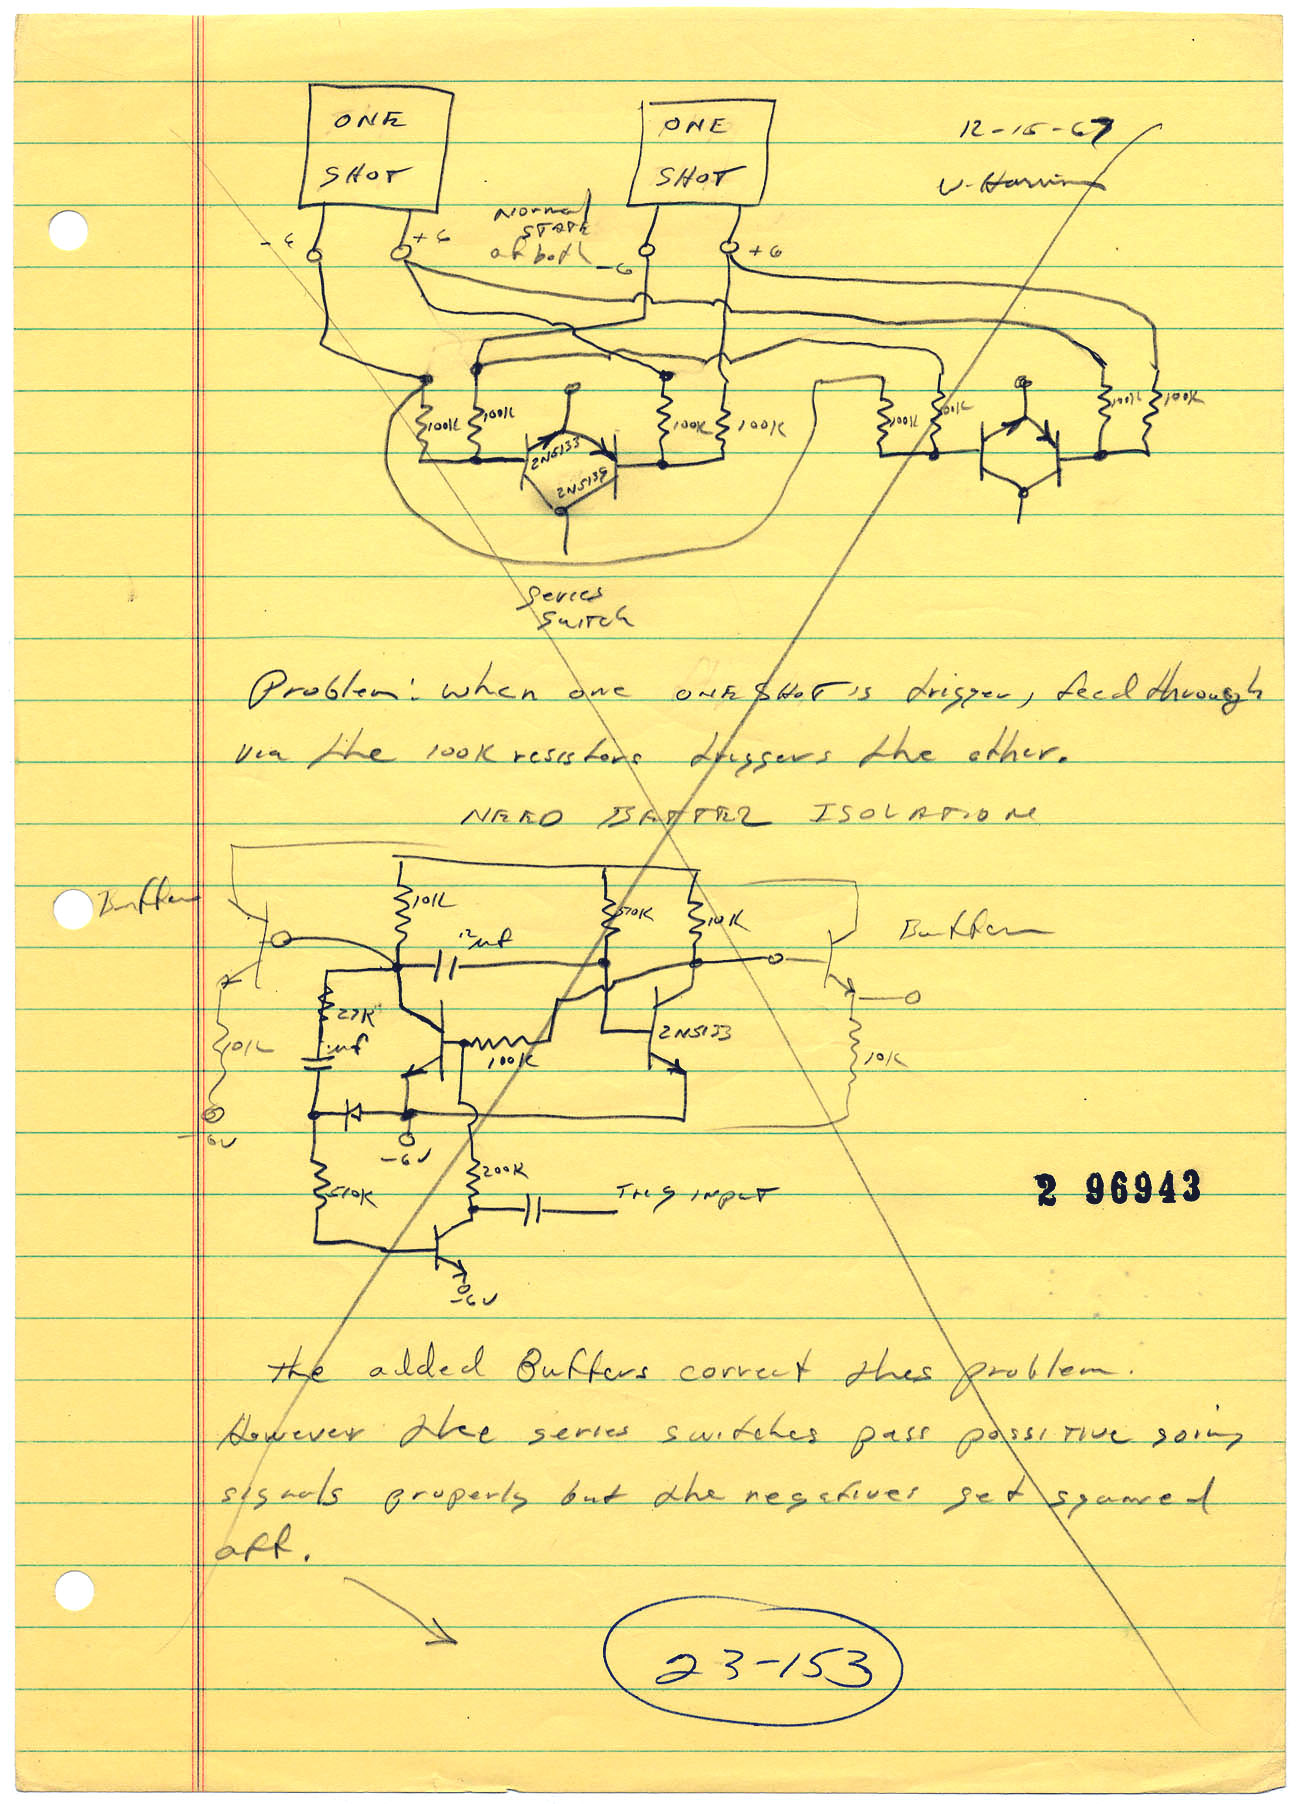 ONE
SHOT
ONE
SHOT
12-15-67
-6
+6
Normal
STATE
of both
-6
+6
100K
100K
2N5133
2N5139
100K
100K
100K
100K
100K
100K
Series
Switch
Problem: when one ONE SHOT is trigger, feed through
via the 100K resistors triggers the other.
NEED BETTER ISOLATION
Buffer
10K
.12 uf
570K
10K
Buffer
27K
.1 uf
100K
2N5133
10K
10K
-6V
-6V
510K
200K
TRIG INPUT
-6V
2 96943
The added Buffers correct this problem.
However the series switches pass possitive going
signals properly but the negatives get squared
off.
23-153